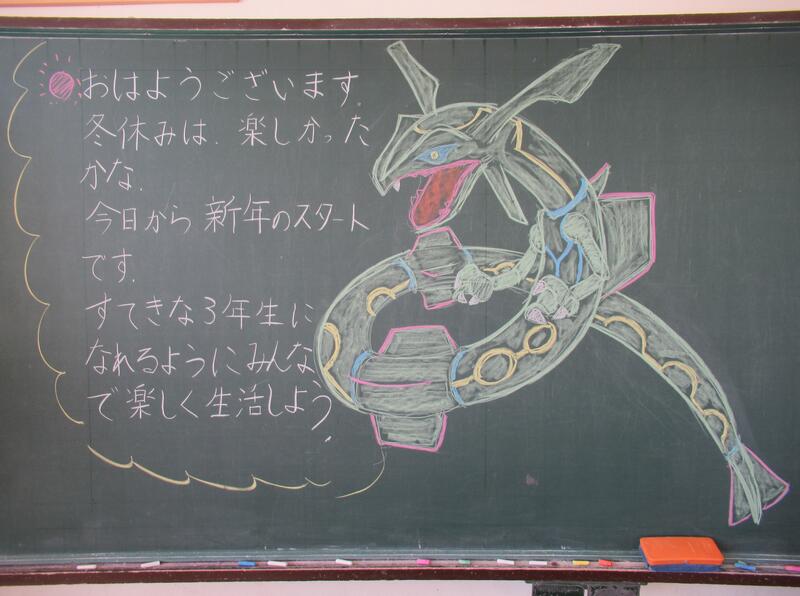 おはようございます。
冬休みは、楽しかった
かな。
今日から新年のスタート
です。
すてきな3年生に
なれるようにみんな
で楽しく生活しよう!